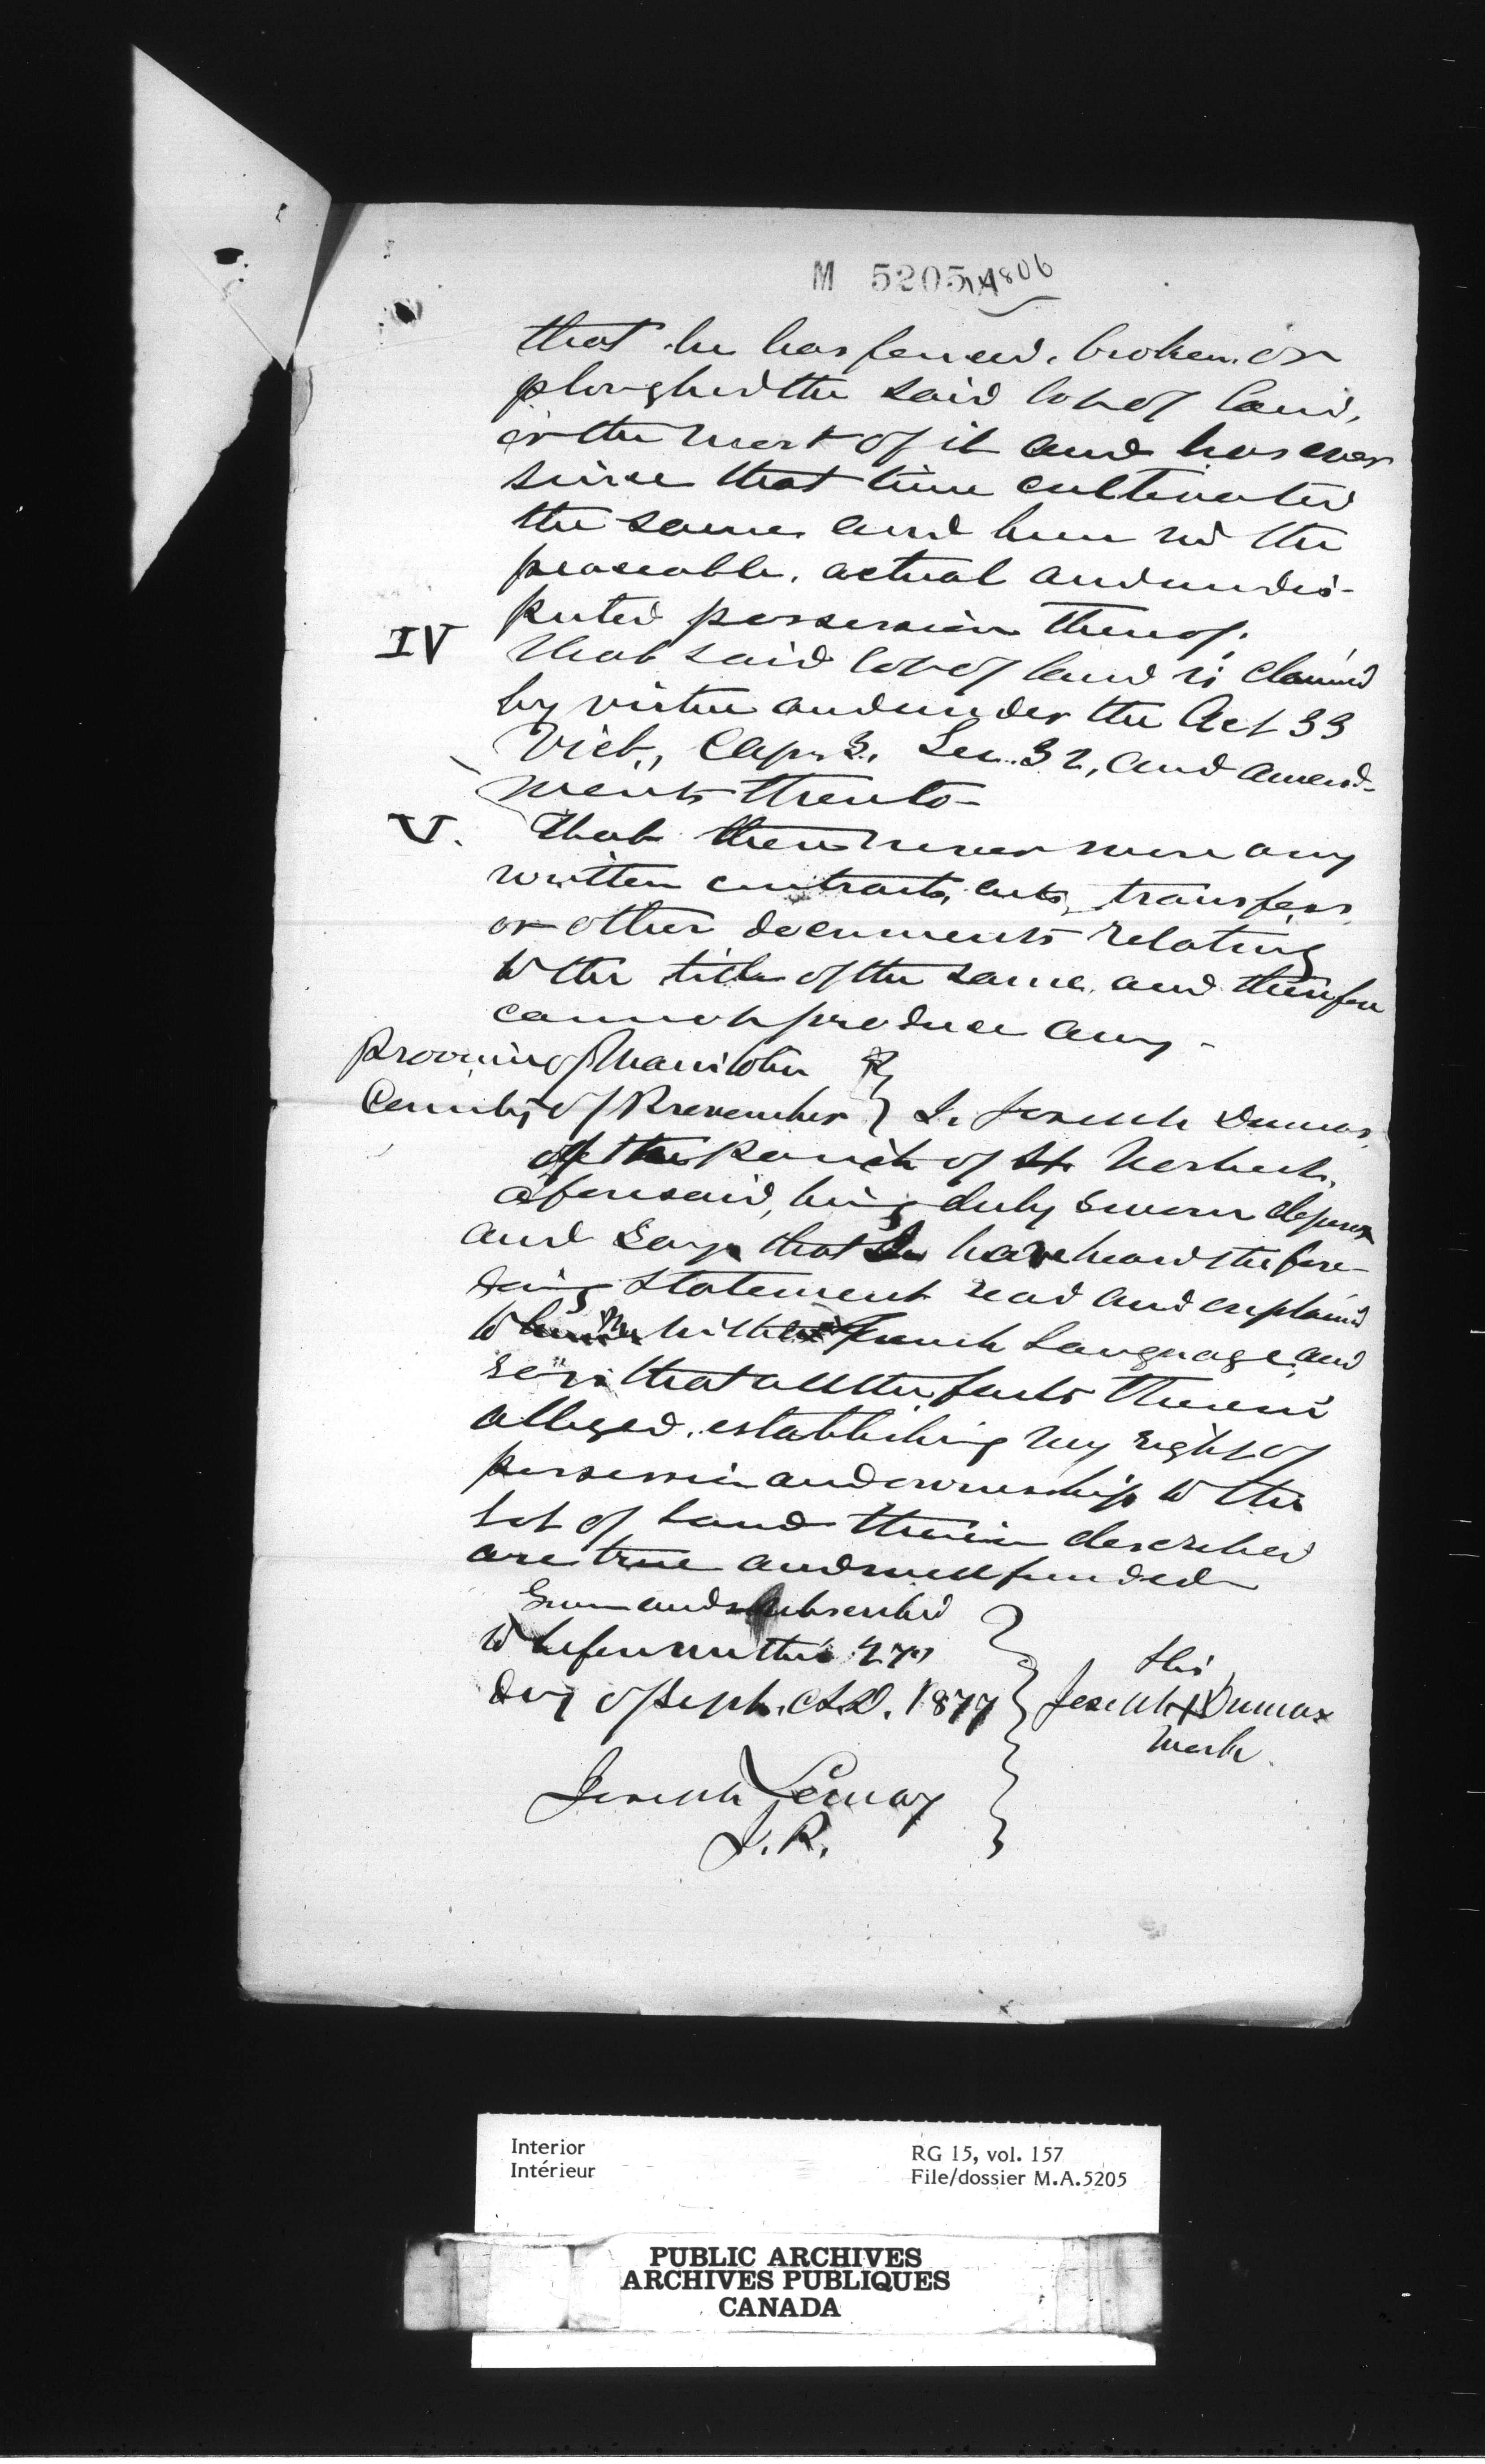 M 5205 1A806
that he has fenced, broken or
ploughed the said lot of land,
or the most of it and has ever
since that time cultivated
the same and been in the
peaceable, actual and undis-
puted possession thereof.
IV That said lot of land is claimed
by virtue and under the Act 33
Vict., Cap. 3, Sec. 32, and amend-
ments thereto-
V. That there never were any
written contracts, acts, transfers
or other documents relating
to the title of the same and therefore
cannot produce any-
Province of Manitoba
County of Provencher } I, Joseph Dumas
of the Parish of St Norbert,
aforesaid, being duly sworn depose
and say that I have heard the fore-
going statement read and explained
to me in the French Language and
say that all the facts therein
alleged, establishing my right of
possession and ownership to the
lot of land therein described
are true and well founded
Sworn and subscribed
to before me this 27th
day of Sept. A.D. 1877
his
Joseph X Dumas
mark.
Joseph Lemay
J.P.
Interior
Intérieur
RG 15, vol. 157
File/dossier M.A.5205
PUBLIC ARCHIVES
ARCHIVES PUBLIQUES
CANADA